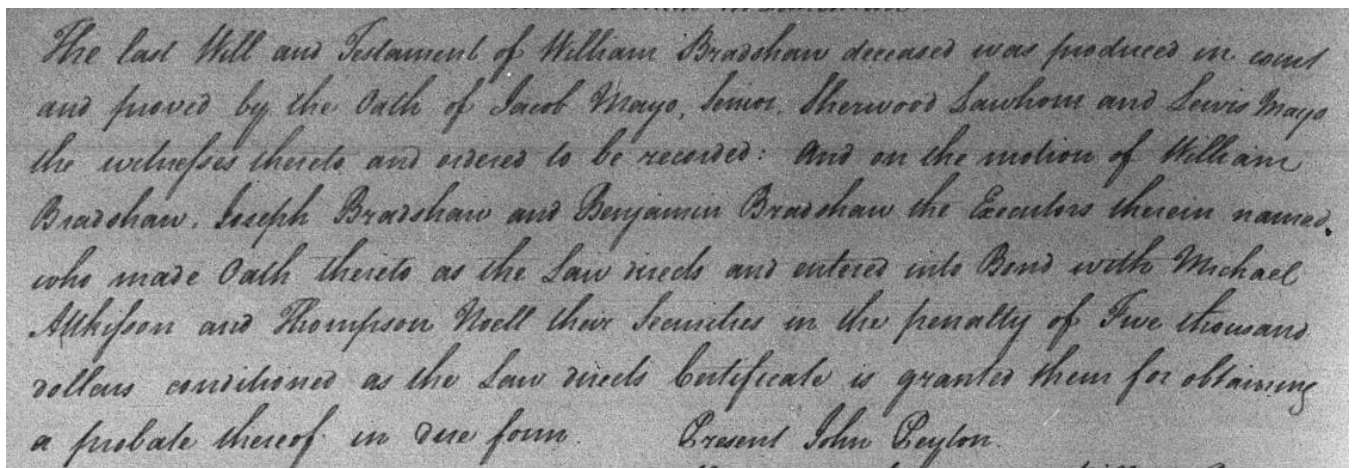 The last Will and Testament of William Bradshaw deceased was produced in court
and proved by the Oath of Jacob Mayo, Senior, Sherwood Lawhorn and Lewis Mayo
the witnesses thereto and ordered to be recorded: And on the motion of William
Bradshaw, Joseph Bradshaw and Benjamin Bradshaw the Executors therein named,
who made Oath thereto as the Law directs and entered into Bond with Michael
Atkisson and Thompson Noell their Securities in the penalty of Five thousand
dollars conditioned as the Law directs Certificate is granted them for obtaining
a probate thereof in due form. Present John Peyton.